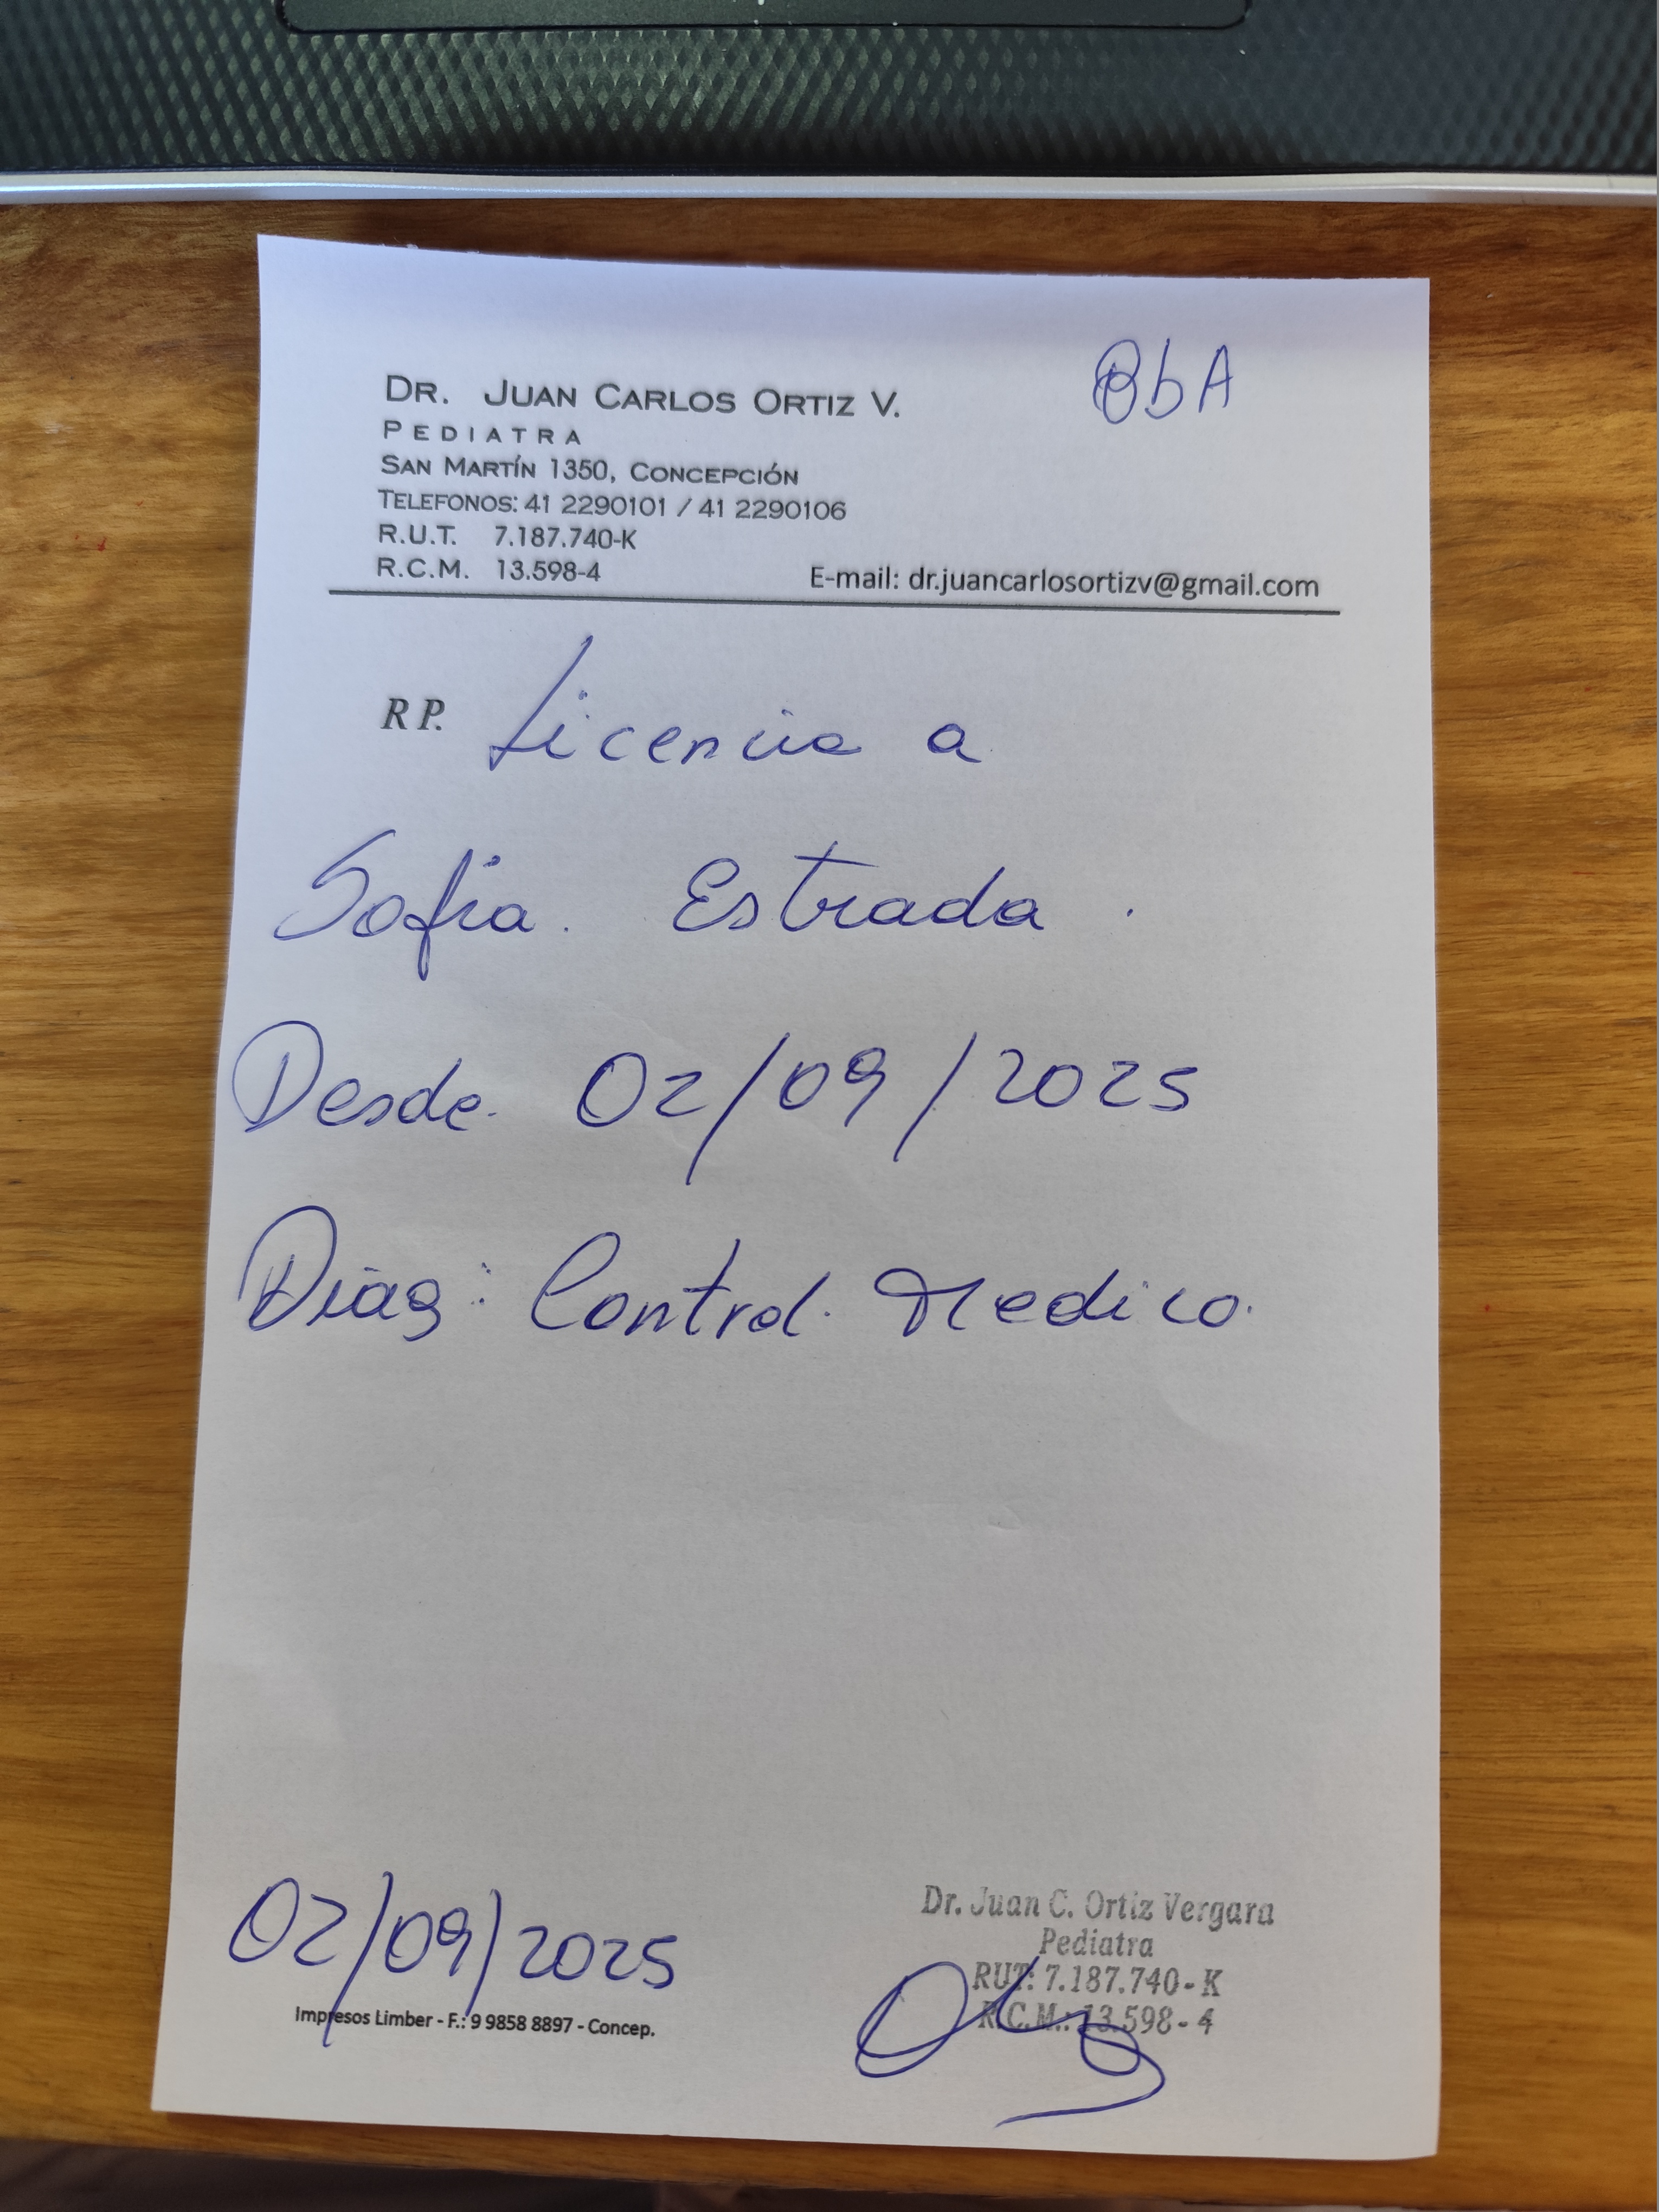 DR. JUAN CARLOS ORTIZ V.
PEDIATRA
SAN MARTÍN 1350, CONCEPCIÓN
TELEFONOS: 41 2290101 / 41 2290106
R.U.T. 7.187.740-K
R.C.M. 13.598-4
E-mail: dr.juancarlosortizv@gmail.com
RP. Licencia a
Sofia. Estrada.
Desde 02/09/2025
Diag: Control. Medico.
02/09/2025
Impresos Limber - F.: 9 9858 8897 - Concep.
Dr. Juan C. Ortiz Vergara
Pediatra
RUT: 7.187.740-K
R.C.M.: 13.598-4